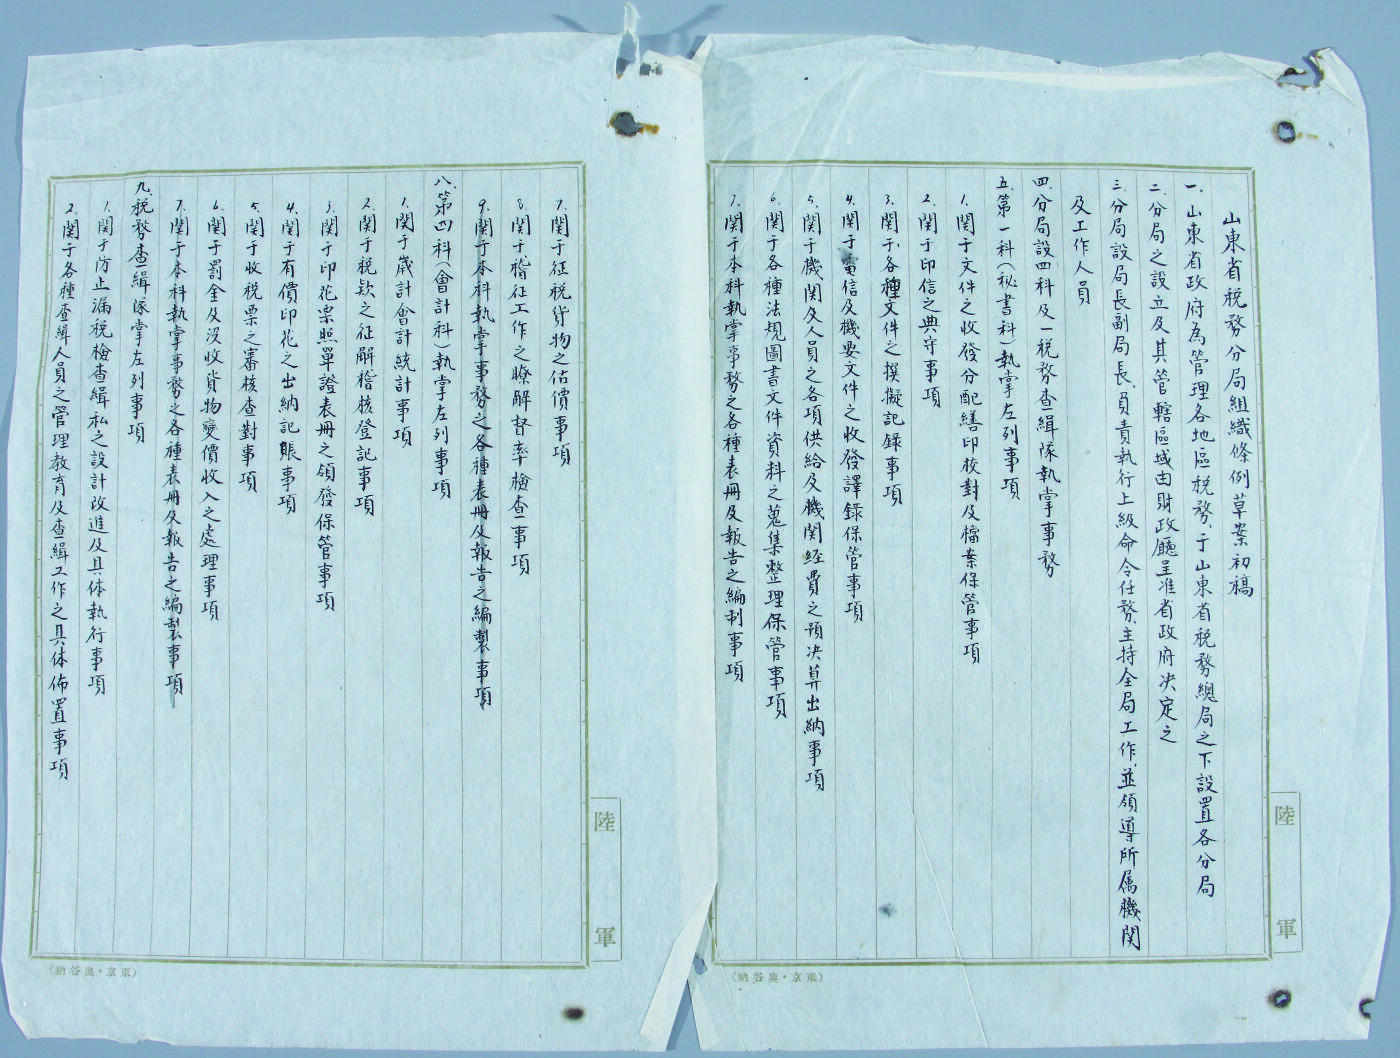 山東省稅務分局組織條例草案初稿
一.山東省政府為管理各地區稅務,于山東省稅務總局之下設置各分局
二.分局之設立及其管轄區域由財政廳呈准省政府决定之
三.分局設局長副局長,員責執行上級命令任務,主持全局工作,並領導所属機関
及工作人員
四.分局設四科及一稅務查緝隊執掌事務
五.第一科(秘書科)執掌左列事項
1.関于文件之收發分配繕印校對及檔案保管事項
2.関于印信之典守事項
3.関于各種文件之撰擬記録事項
4.関于電信及機要文件之收發譯錄保管事項
5.関于機関及人員之各項供給及機関経費之預决算出納事項
6.関于各種法規圖書文件資料之蒐集整理保管事項
7.関于本科執掌事務之各種表冊及報告之編制事項
陸軍
(東京·奥谷納)
7.関于征稅貨物之估價事項
8.関于稽征工作之瞭解督率檢查事項
9.関于本科執掌事務之各種表冊及報告之編製事項
八.第四科(會計科)執掌左列事項
1.関于歲計會計統計事項
2.関于稅欵之征解稽核登記事項
3.関于印花票照單證表冊之領發保管事項
4.関于有價印花之出納記賬事項
5.関于收稅票之審核查對事項
6.関于罰金及沒收貨物變價收入之處理事項
7.関于本科執掌事務之各種表冊及報告之編製事項
九.稅務查緝隊掌左列事項
1.関于防止漏稅檢查緝私之設計改進及具体執行事項
2.関于各種查緝人員之管理教育及查緝工作之具体佈置事項
陸軍
(東京·奥谷納)